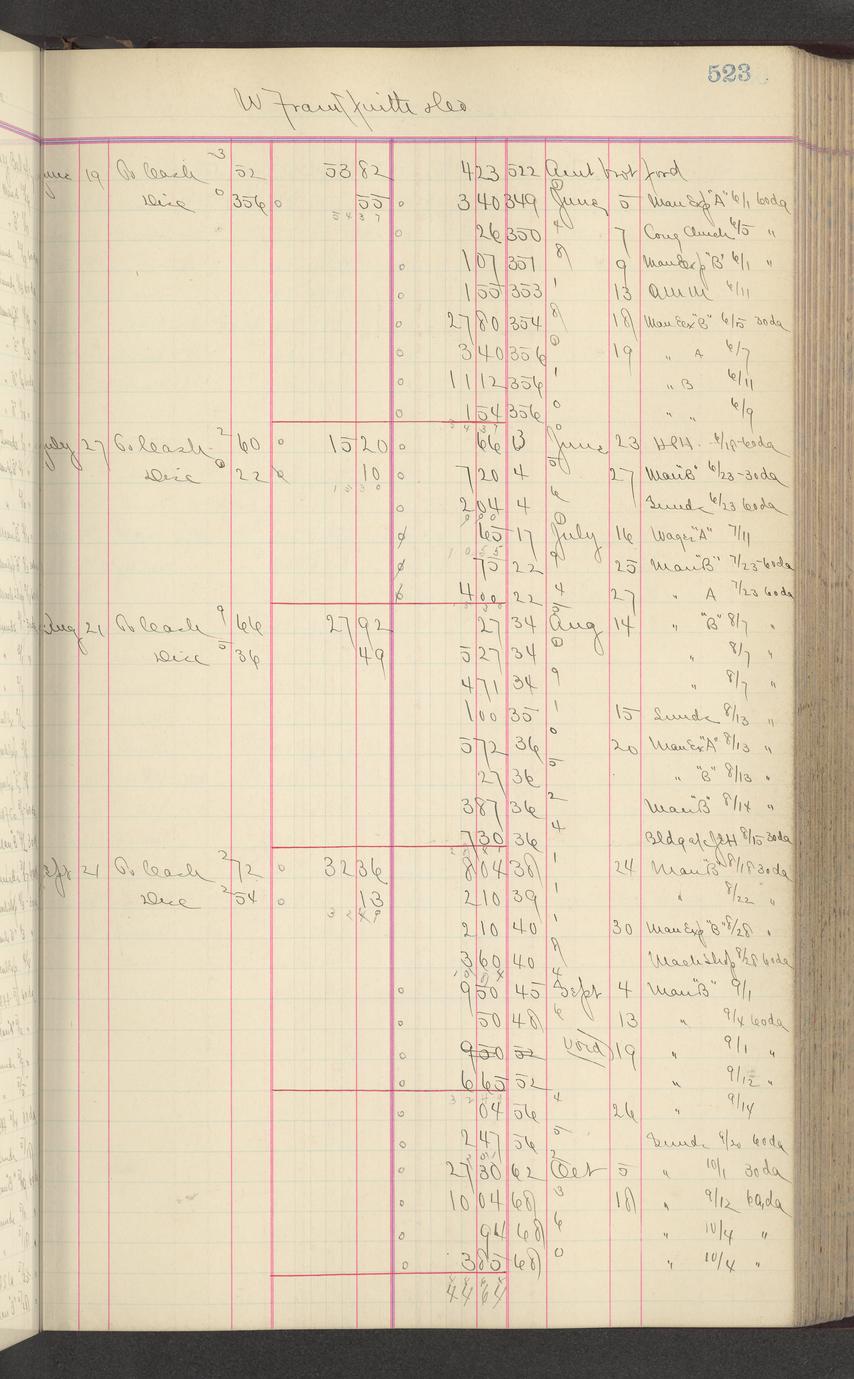 523
W Frank
June 19 To Cash 3 52 53 82 4 23 522 Amt brot ford
Disc 0 356 55 3 40 349 June 5 Man Exp "A" 6/1 60da
5437
26 350 4 7 Cong Church 6/5 "
1 07 351 8 9 Man Exp "B" 6/1 "
1 55 353 1 13 6/11
27 80 354 8 18 Man Ex "B" 6/15 30da
3 40 356 0 19 " A 6/7
11 12 356 1 " B 6/11
1 54 356 0 " " 6/9
5437
July 27 To Cash 2 60 15 20 66 3 0 June 23 6/18-60da
Disc 0 22 10 7 20 4 5 27 Man "B" 6/23-30da
1530
2 04 4 6 Sunds 6/23 60da
990
65 17 0 July 16 Wages "A" 7/11
1055
75 22 9 25 Man "B" 7/23-60da
4 00 22 4 27 " A 7/23 60da
1530
Aug 21 To Cash 9 66 27 92 27 34 5 Aug 14 " "B" 8/7 "
Disc 5 36 49 5 27 34 0 " 8/7 "
4 71 34 9 " 8/7 "
1 00 35 1 15 Sunds 8/13 "
5 72 36 0 20 Man Ex "A" 8/13 "
27 36 5 " "B" 8/13 "
3 87 36 2 Man "B" 8/14 "
7 30 36 4 Bldg 8/15 30da
Sept 21 To Cash 2 72 32 36 8 04 38 1 24 Man "B" 8/18 30da
Disc 2 54 13 2 10 39 1 " 8/22 "
3249
2 10 40 1 30 Man Exp "B" 8/28 "
3 60 40 8 Mach Shop 8/28 60da
9 50 45 4 Sept 4 Man "B" 9/1
50 48 6 13 " 9/4 60da
9 50 52 Void 19 " 9/1 "
6 65 52 " 9/12 "
3249
04 56 4 26 " 9/14
2 47 56 5 Sunds 9/20 60da
27 30 62 2 Oct 5 " 10/1 30da
10 04 68 3 18 " 9/12 60da
94 68 6 " 10/4 "
3 85 68 0 " 10/4 "
44 64